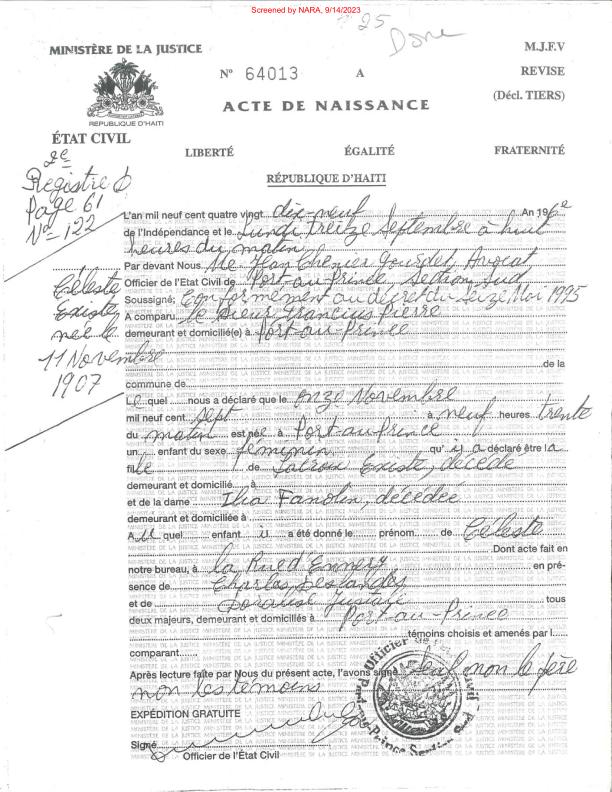 Screened by NARA, 9/14/2023
25
Done
MINISTÈRE DE LA JUSTICE
M.J.F.V
REVISE
(Décl. TIERS)
N° 64013 A
ACTE DE NAISSANCE
REPUBLIQUE D'HAITI
ÉTAT CIVIL
LIBERTÉ ÉGALITÉ FRATERNITÉ
RÉPUBLIQUE D'HAITI
2e
Registre
Page 61
N° = 122
Céleste
Existe,
née le
11 Novembre
1907
L'an mil neuf cent quatre vingt dix-neuf An 196e
de l'Indépendance et le Lundi Treize Septembre à huit
heures du matin
Par devant Nous Me Jean Chenier Gourdet, Avocat
Officier de l'Etat Civil de Port-au-Prince, Section Sud
Soussigné; Conformément au décret du Seize Mai 1995
A comparu le Sieur Francius Pierre
demeurant et domicilié(e) à Port-au-Prince
de la
commune de
Le quel nous a déclaré que le onze Novembre
mil neuf cent sept à neuf heures trente
du matin est née à Port-au-Prince
un enfant du sexe féminin qu'il a déclaré être la
fille de Existe, décédé
demeurant et domicilié à
et de la dame Ilia Fanolin, décédée
demeurant et domiciliée à
A quel enfant a été donné le prénom de Céleste
Dont acte fait en
notre bureau, à la Rue d'Ennery en pré-
sence de Charles Deslandes
et de tous
deux majeurs, demeurant et domiciliés à Port-au-Prince
témoins choisis et amenés par l
comparant
Après lecture faite par Nous du présent acte, l'avons signé seul non le père
non les témoins
EXPÉDITION GRATUITE
Signé
Officier de l'État Civil